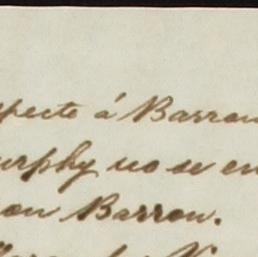 specto á Barron
urphy no se en
on Barron.